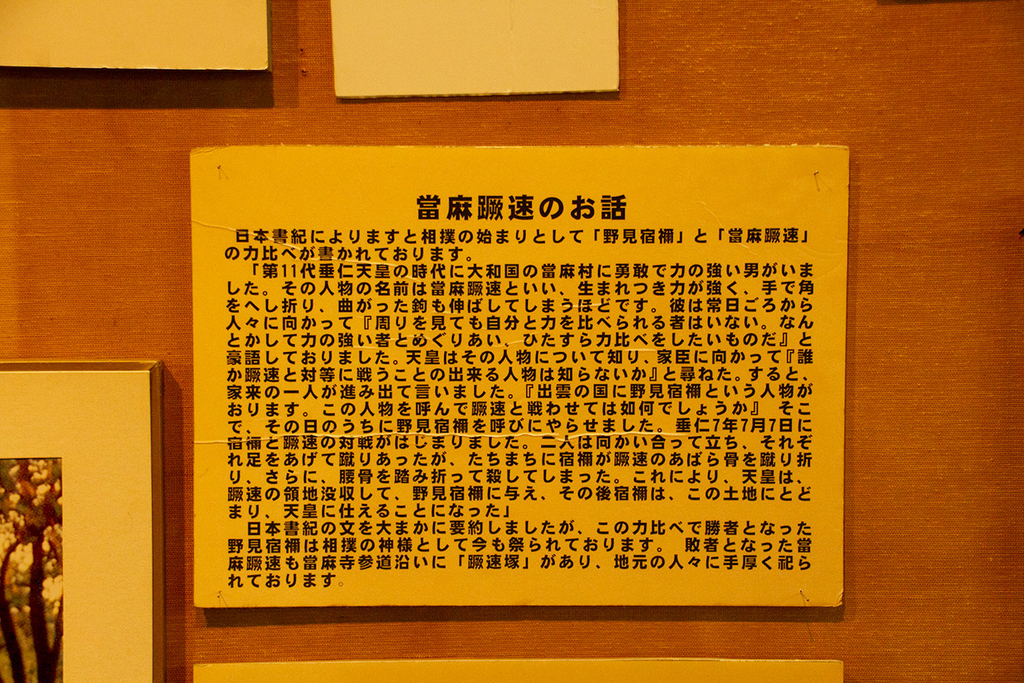 當麻蹶速のお話
日本書紀によりますと相撲の始まりとして「野見宿禰」と「當麻蹶速」
の力比べが書かれております。
「第11代垂仁天皇の時代に大和国の當麻村に勇敢で力の強い男がいま
した。その人物の名前は當麻蹶速といい、生まれつき力が強く、手で角
をへし折り、曲がった鉤も伸ばしてしまうほどです。彼は常日ごろから
人々に向かって『周りを見ても自分と力を比べられる者はいない。なん
とかして力の強い者とめぐりあい、ひたすら力比べをしたいものだ』と
豪語しておりました。天皇はその人物について知り、家臣に向かって『誰
か蹶速と対等に戦うことの出来る人物は知らないか』と尋ねた。すると、
家来の一人が進み出て言いました。『出雲の国に野見宿禰という人物が
おります。この人物を呼んで蹶速と戦わせては如何でしょうか』 そこ
で、その日のうちに野見宿禰を呼びにやらせました。垂仁7年7月7日に
宿禰と蹶速の対戦がはじまりました。二人は向かい合って立ち、それぞ
れ足をあげて蹴りあったが、たちまちに宿禰が蹶速のあばら骨を蹴り折
り、さらに、腰骨を踏み折って殺してしまった。これにより、天皇は、
蹶速の領地没収して、野見宿禰に与え、その後宿禰は、この土地にとど
まり、天皇に仕えることになった」
日本書紀の文を大まかに要約しましたが、この力比べで勝者となった
野見宿禰は相撲の神様として今も祭られております。 敗者となった當
麻蹶速も當麻寺参道沿いに「蹶速塚」があり、地元の人々に手厚く祀ら
れております。